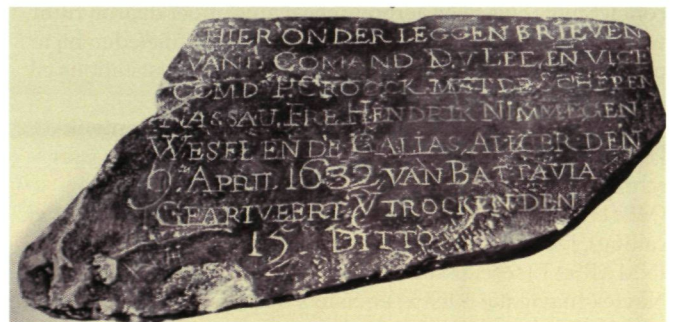 HIER ONDER LEGGEN BRIEVEN
VAND COMAND D. V LEE, EN VICE
COMD P. CROOCK MAT DE SCHEPEN
NASSAU, FRE HENDRIK NIMMEGEN
WESEL EN DE GALIAS, ALHIER DEN
9. APRIL 1632, VAN BATTAVIA
GEARIVEERT, VTROCKEN DEN
15 DITTO